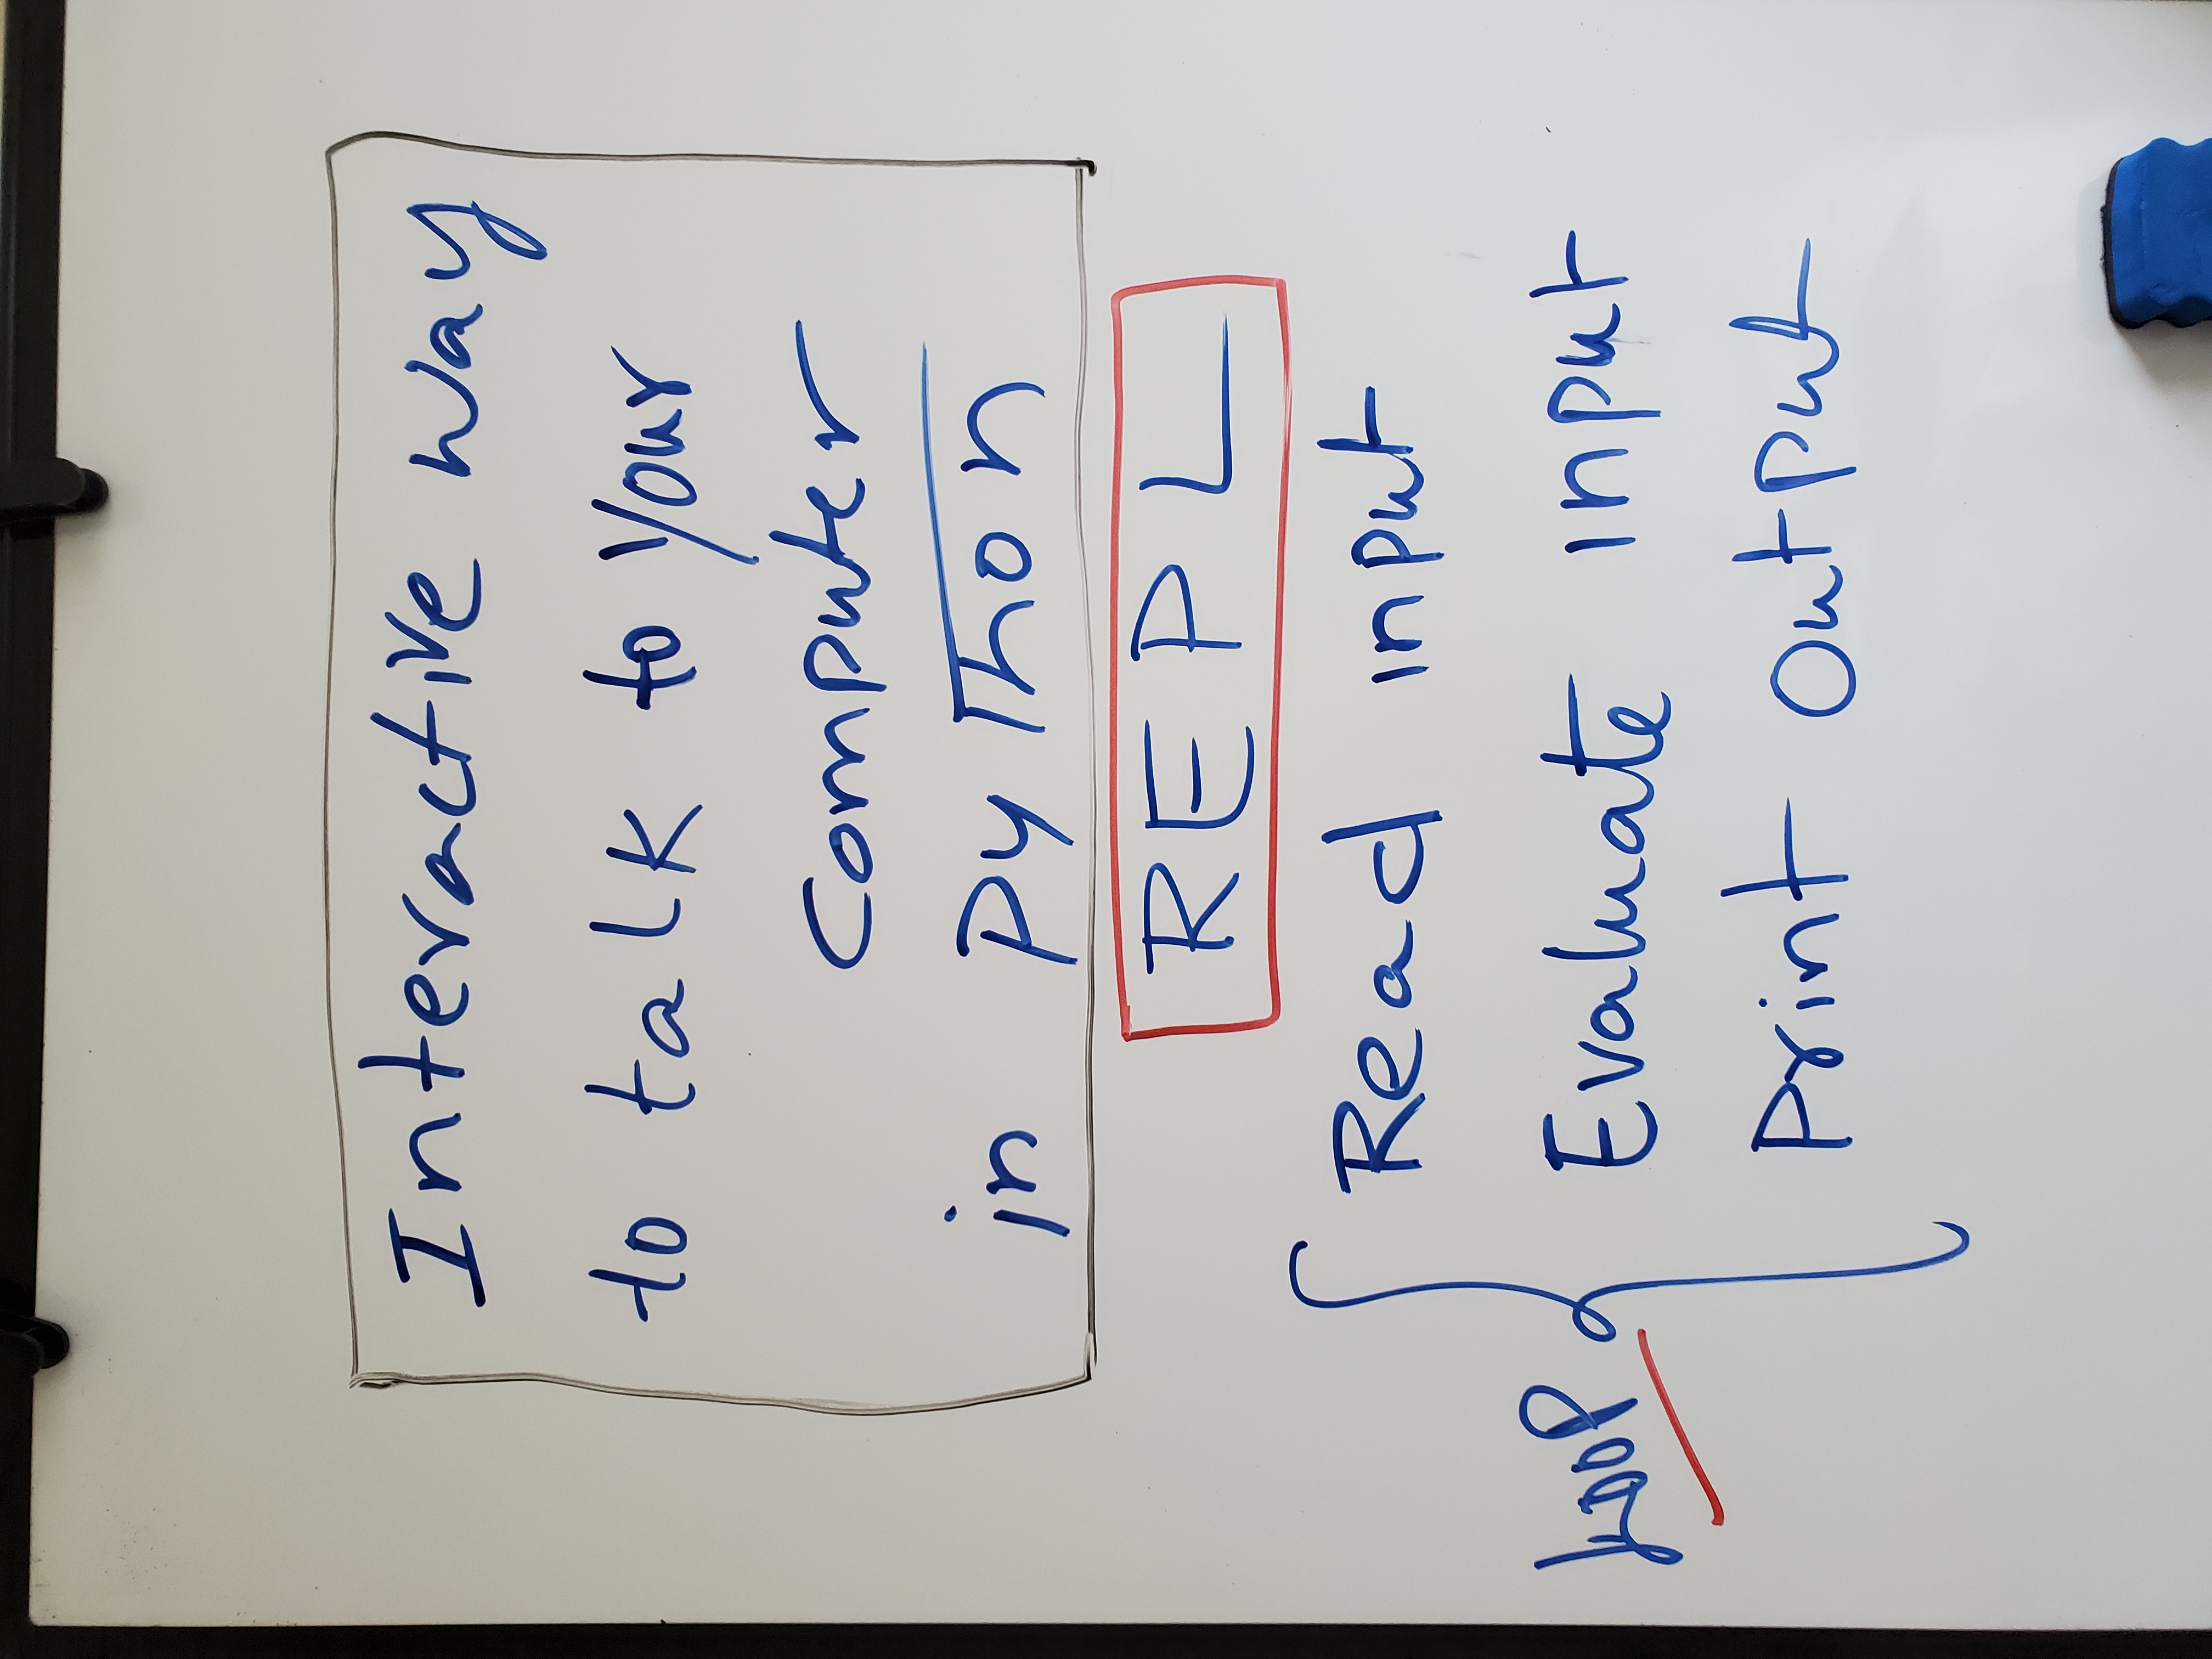 Interactive way
to talk to your
computer
in PyThon
REPL
Read input
LOOP
Evaluate input
Print output